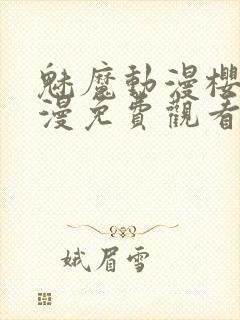 魅魔動漫櫻
漫免費觀看
娥眉雪